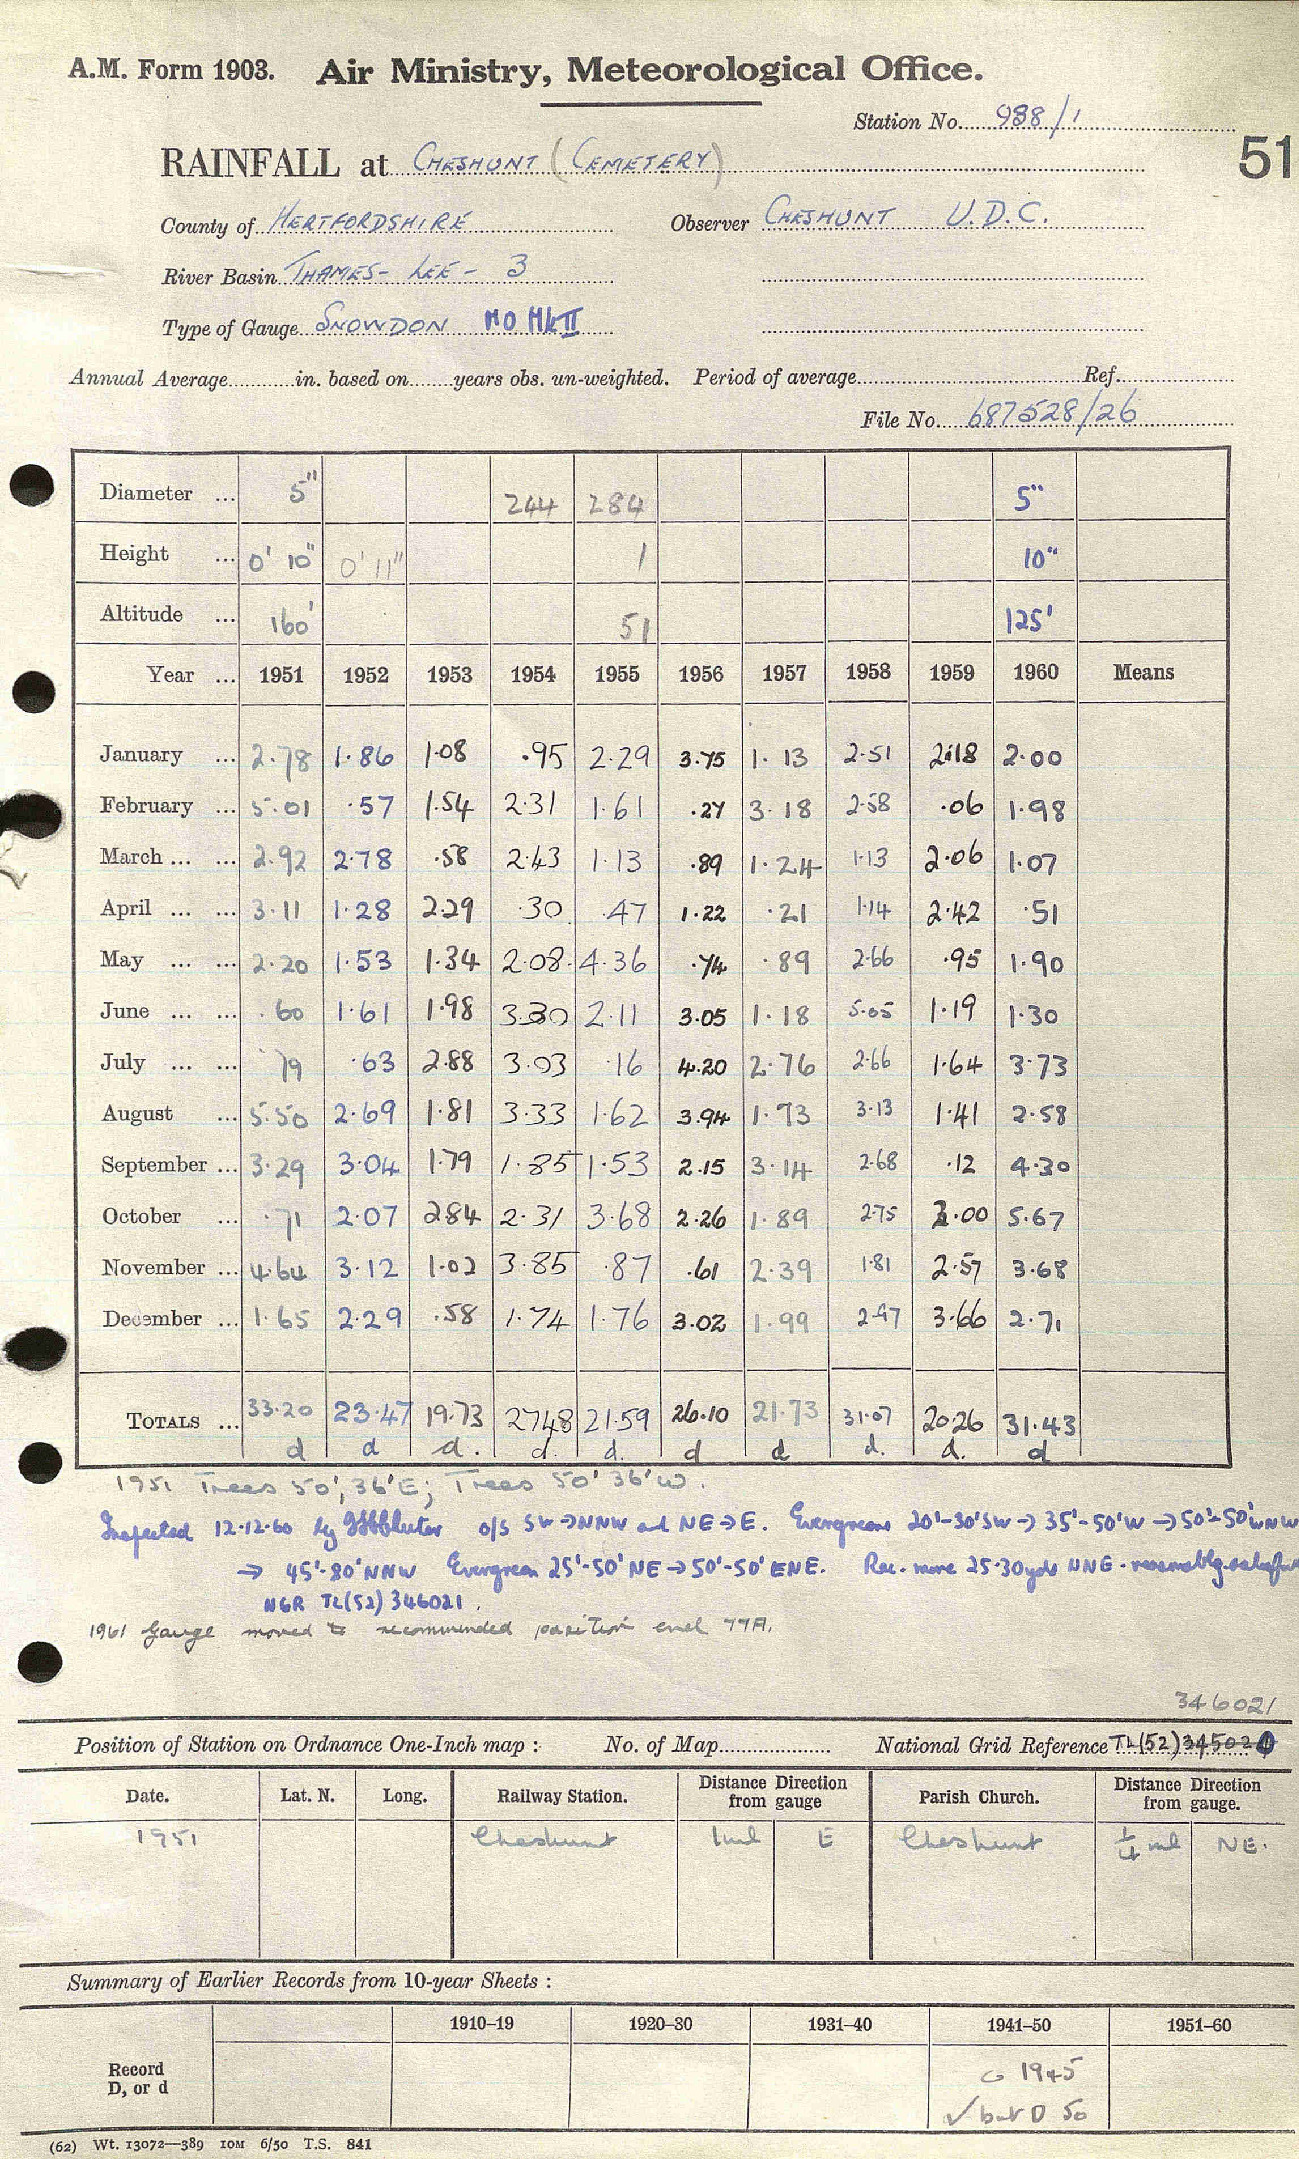 A.M. Form 1903. Air Ministry, Meteorological Office.
Station No. 988/1
51
RAINFALL at CHESHUNT (CEMETERY)
County of HERTFORDSHIRE Observer CHESHUNT U.D.C.
River Basin THAMES - LEE - 3
Type of Gauge SNOWDON MO MkII
Annual Average in. based on years obs. un-weighted. Period of average Ref.
File No. 687528/26
Diameter ... 5" 244 284 5"
Height ... 0' 10" 0' 11" 1 10"
Altitude ... 160' 51 125'
Year ... 1951 1952 1953 1954 1955 1956 1957 1958 1959 1960 Means
January ... 2.78 1.86 1.08 .95 2.29 3.75 1.13 2.51 2.18 2.00
February ... 5.01 .57 1.54 2.31 1.61 .27 3.18 2.58 .06 1.98
March ... ... 2.92 2.78 .58 2.43 1.13 .89 1.24 1.13 2.06 1.07
April ... ... 3.11 1.28 2.29 .30 .47 1.22 .21 1.14 2.42 .51
May ... ... 2.20 1.53 1.34 2.08 4.36 .74 .89 2.66 .95 1.90
June ... ... .60 1.61 1.98 3.30 2.11 3.05 1.18 5.05 1.19 1.30
July ... ... .79 .63 2.88 3.03 .16 4.20 2.76 2.66 1.64 3.73
August ... 5.50 2.69 1.81 3.33 1.62 3.94 1.73 3.13 1.41 2.58
September ... 3.29 3.04 1.79 1.85 1.53 2.15 3.14 2.68 .12 4.30
October ... .71 2.07 2.84 2.31 3.68 2.26 1.89 2.75 2.00 5.67
November ... 4.64 3.12 1.02 3.85 .87 .61 2.39 1.81 2.57 3.68
December ... 1.65 2.29 .58 1.74 1.76 3.02 1.99 2.97 3.66 2.71
TOTALS ... 33.20 23.47 19.73 27.48 21.59 26.10 21.73 31.07 20.26 31.43
d d d. d. d. d d d. d. d
1951 Trees 50', 36'E; Trees 50' 36'W.
Inspected 12.12.60 by o/s SW→NNW and NE→E. Evergreens 20'-30'SW → 35'-50'W → 50'-50'WNW
→ 45'-80'NNW Evergreen 25'-50'NE → 50'-50'ENE. Rec. move 25-30yds NNE -
NGR TL(52)346021.
1961 Gauge moved to recommended position
346021
Position of Station on Ordnance One-Inch map : No. of Map National Grid Reference TL(52)345020
Date. Lat. N. Long. Railway Station. Distance Direction from gauge Parish Church. Distance Direction from gauge.
1951 Cheshunt 1ml E Cheshunt 1/4 ml NE.
Summary of Earlier Records from 10-year Sheets :
1910-19 1920-30 1931-40 1941-50 1951-60
Record
D, or d
1945
✓ but D 50
(62) Wt. 13072—389 10M 6/50 T.S. 841